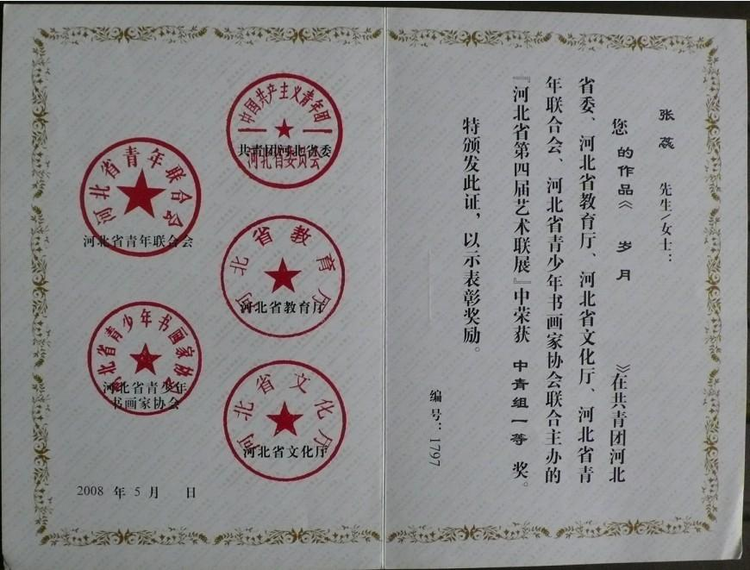 张蕊 先生/女士：
您的作品《 岁月 》在共青团河北
省委、河北省教育厅、河北省文化厅、河北省青
年联合会、河北省青少年书画家协会联合主办的
『河北省第四届艺术联展』中荣获 中青组一等 奖。
特颁发此证，以示表彰奖励。
编号：1797
中国共产主义青年团
河北省委员会
共青团河北省委
河北省青年联合会
河北省青年联合会
河北省教育厅
河北省教育厅
河北省青少年书画家协会
河北省青少年
书画家协会
河北省文化厅
河北省文化厅
2008 年 5 月 日